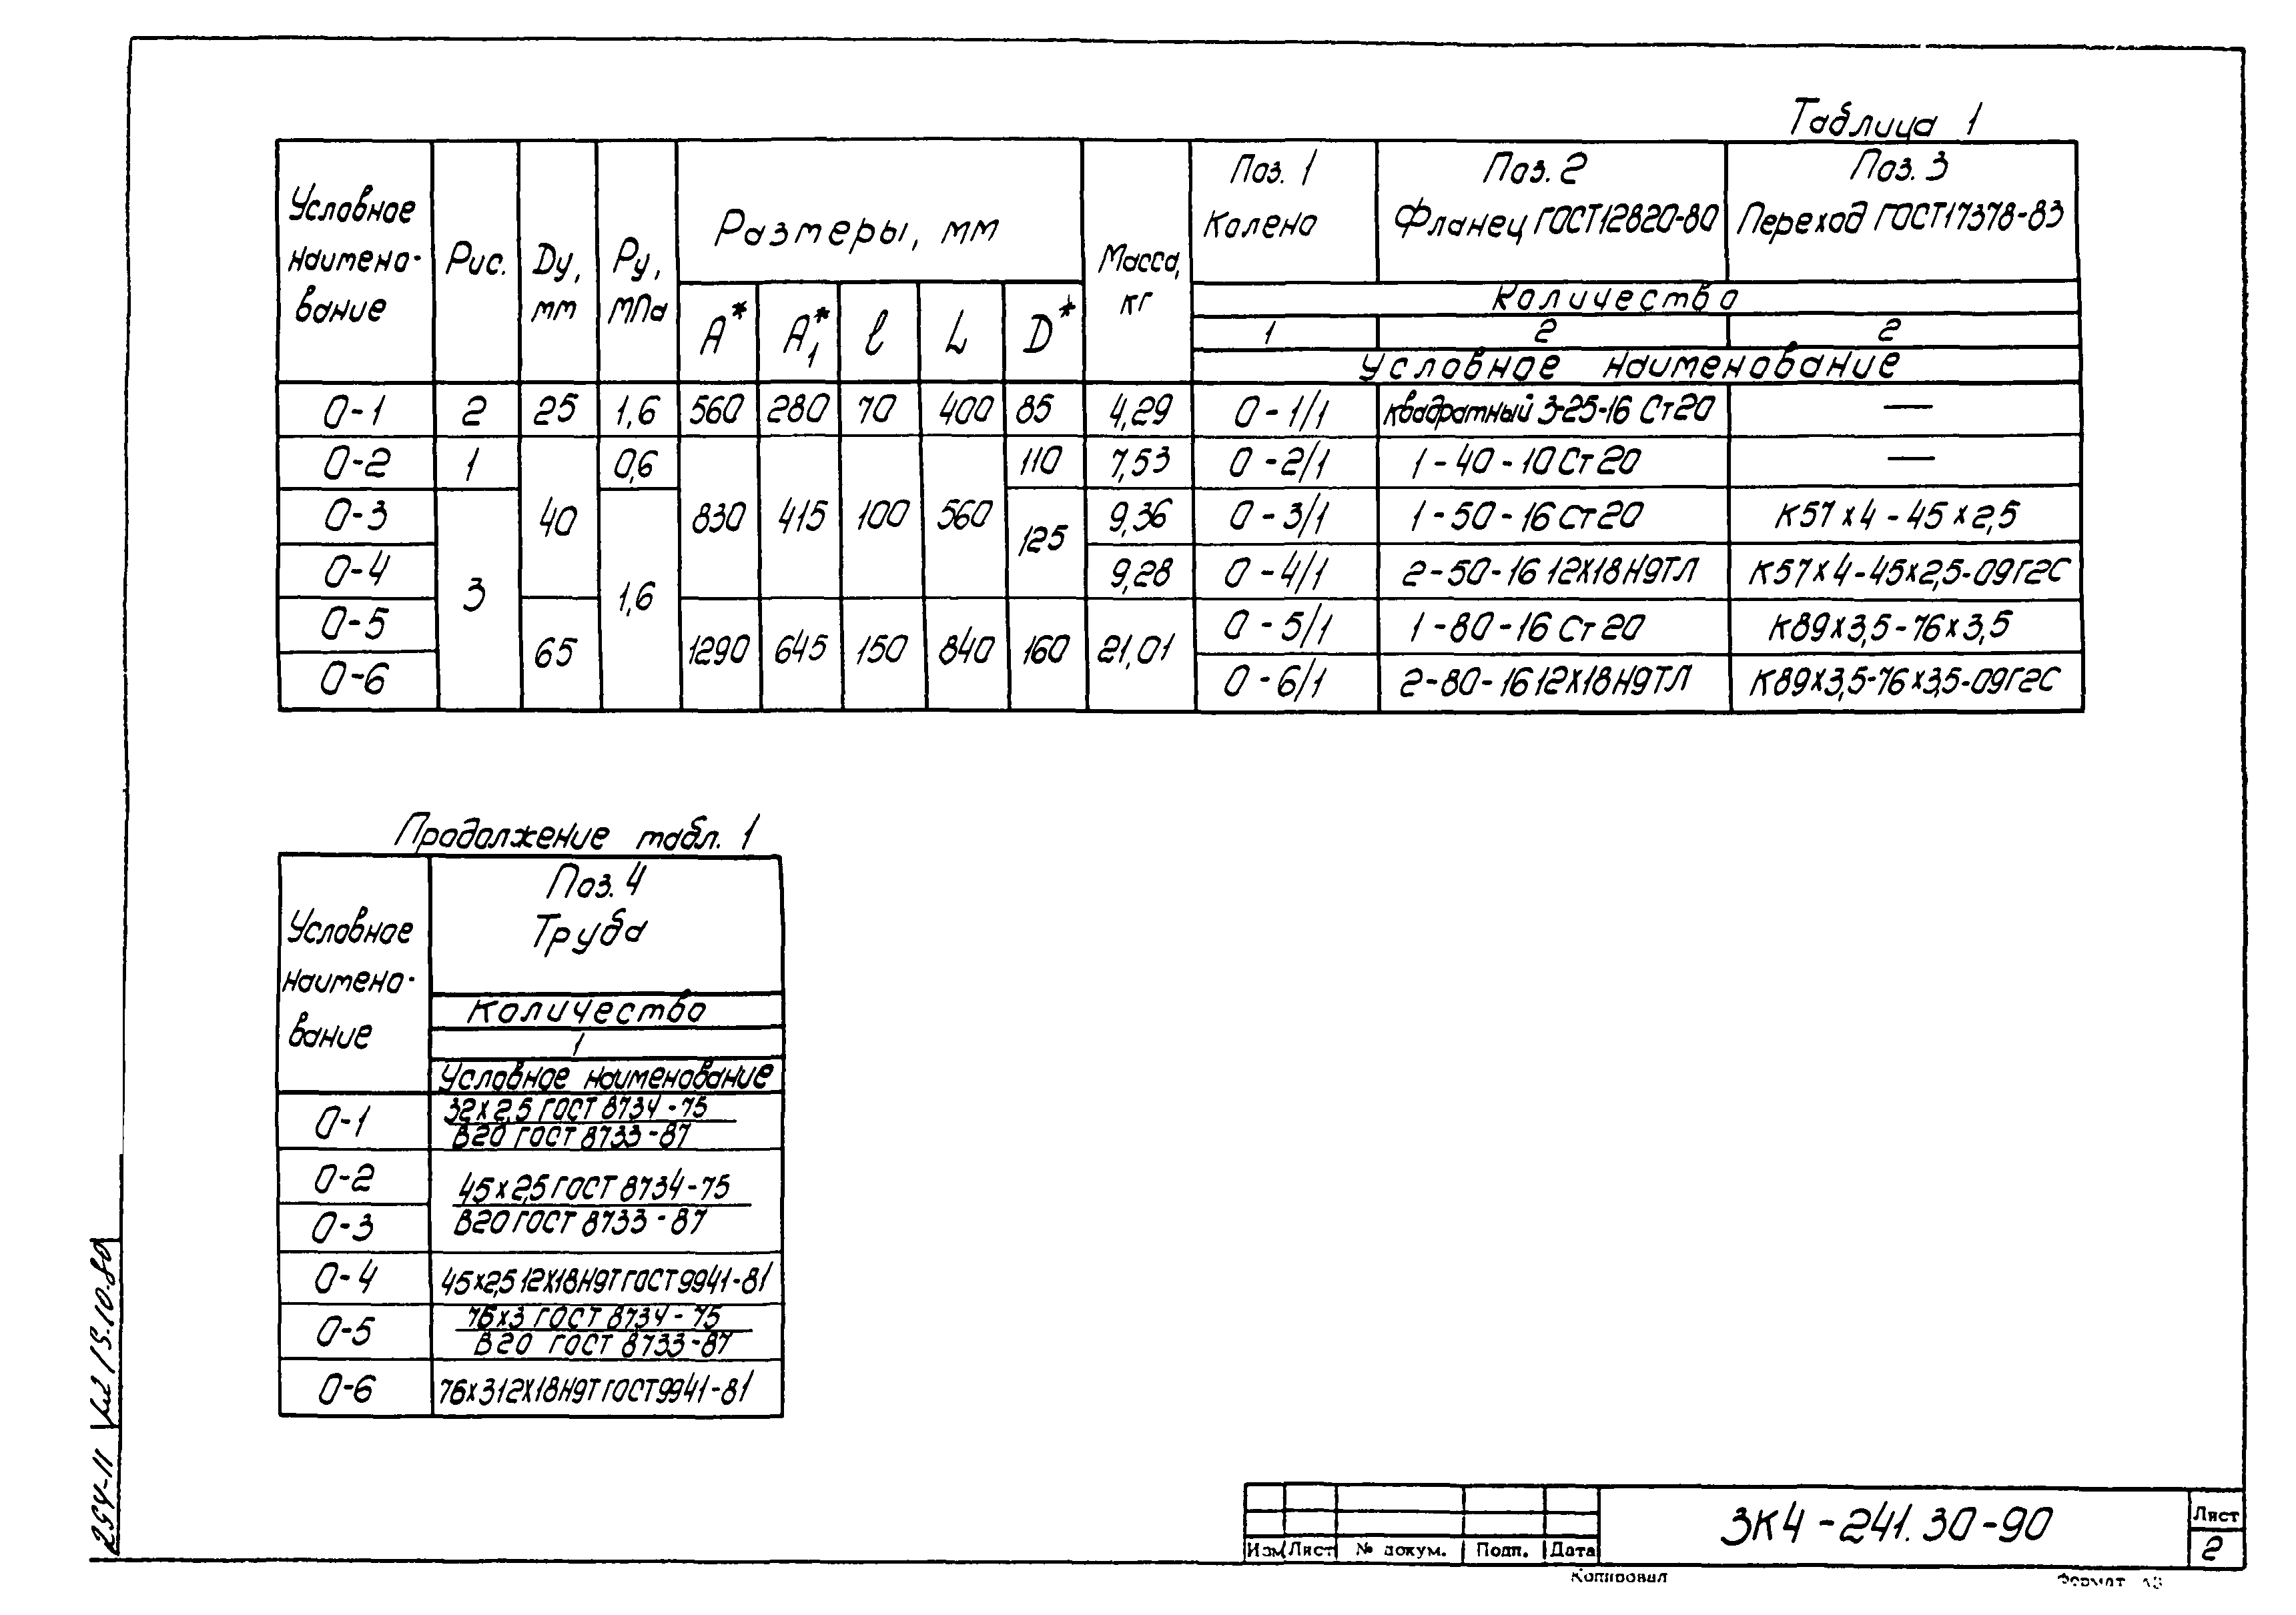 Таблица 1
Условное наимено- вание | Рис. | Dу, мм | Pу, МПа | Размеры, мм | Масса, кг | Поз. 1 Колено | Поз. 2 Фланец ГОСТ12820-80 | Поз. 3 Переход ГОСТ17378-83
A* | A₁* | ℓ | L | D*
Количество
1 | 2 | 2
Условное наименование
О-1 | 2 | 25 | 1,6 | 560 | 280 | 70 | 400 | 85 | 4,29 | О-1/1 | квадратный 3-25-16 Ст20 | —
О-2 | 1 | 40 | 0,6 | 830 | 415 | 100 | 560 | 110 | 7,53 | О-2/1 | 1-40-10 Ст20 | —
О-3 | 3 | 1,6 | 125 | 9,36 | О-3/1 | 1-50-16 Ст20 | К57х4-45х2,5
О-4 | 9,28 | О-4/1 | 2-50-16 12Х18Н9ТЛ | К57х4-45х2,5-09Г2С
О-5 | 65 | 1290 | 645 | 150 | 840 | 160 | 21,01 | О-5/1 | 1-80-16 Ст20 | К89х3,5-76х3,5
О-6 | О-6/1 | 2-80-16 12Х18Н9ТЛ | К89х3,5-76х3,5-09Г2С
Продолжение табл. 1
Условное наимено- вание | Поз. 4 Труба
Количество
1
Условное наименование
О-1 | 32х2,5 ГОСТ 8734-75
В20 ГОСТ 8733-87
О-2
О-3 | 45х2,5 ГОСТ 8734-75
В20 ГОСТ 8733-87
О-4 | 45х2,5 12Х18Н9Т ГОСТ 9941-81
О-5 | 76х3 ГОСТ 8734-75
В20 ГОСТ 8733-87
О-6 | 76х3 12Х18Н9Т ГОСТ 9941-81
254-11 15.10.80
Изм Лист № докум. Подп. Дата
ЗК4-241.30-90
Лист
2
Копировал
Формат А3